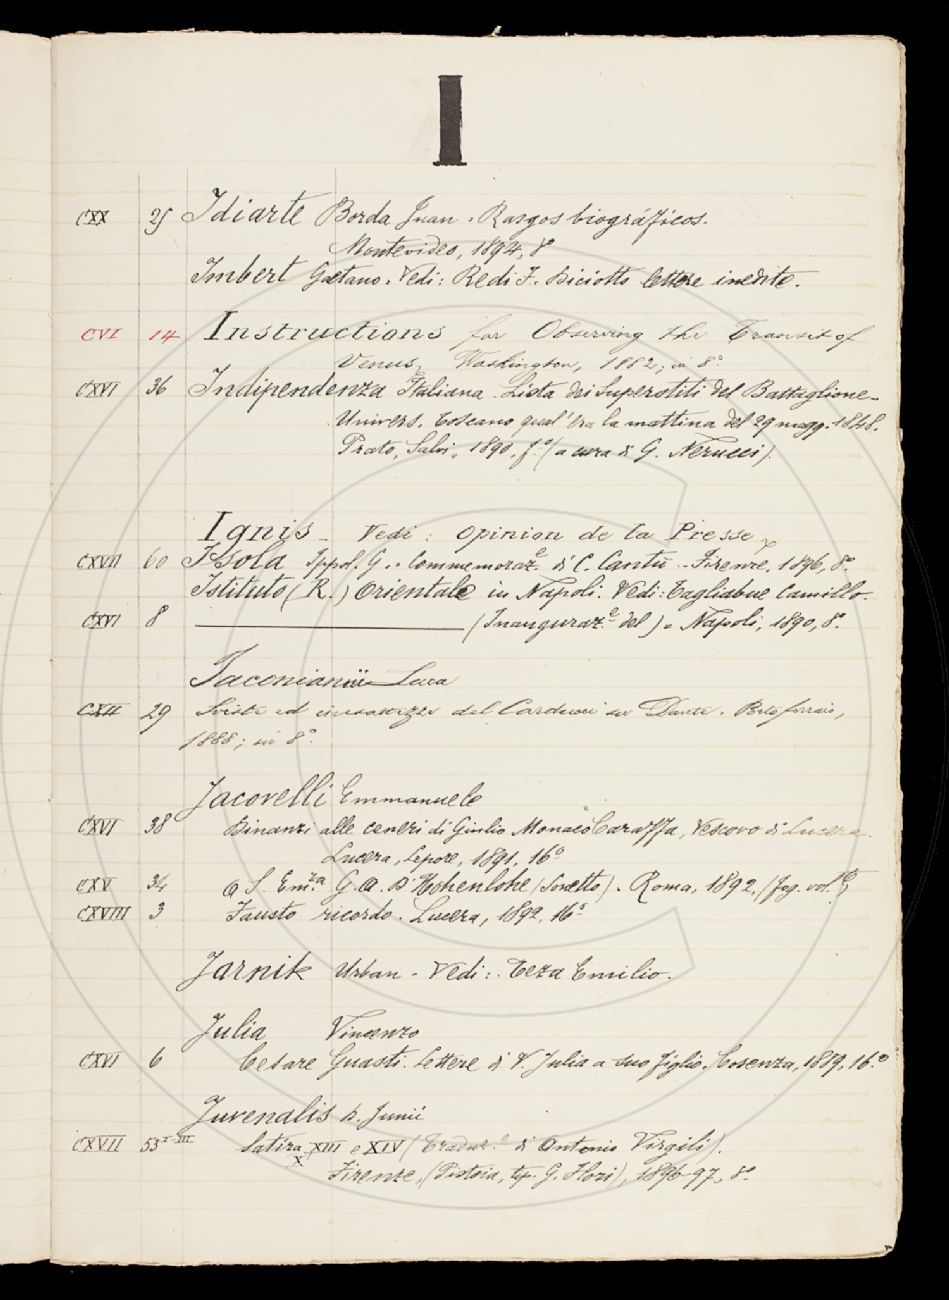 I
CXX 25 Idiarte Borda Juan. Rasgos biográficos.
Montevideo, 1894, 8°
Imbert Gaetano. Vedi: Redi F. Diciotto lettere inedite.
CVI 14 Instructions for Observing the Transit of
Venus, Washington, 1882; in 8°.
CXVI 36 Indipendenza Italiana. Lista dei Superstiti del Battaglione
Univers. Toscano qual'era la mattina del 29 magg. 1848.
Prato, Salvi, 1890, f.° (a cura di G. Nerucci).
Ignis - Vedi: Opinion de la Presse
CXVII 60 Isola Ippol. G. - Commemoraz.e di C. Cantù - Firenze, 1896, 8°.
Istituto (R.) Orientale in Napoli. Vedi: Tagliabue Camillo.
CXVI 8 ——— (Inauguraz.e del). Napoli, 1890, 8°.
Luca
CXII 29 Sviste ed inesattezze del Carducci su Dante. Portoferraio,
1888; in 8°.
Jacovelli Emmanuele
CXVI 38 Dinanzi alle ceneri di Giulio Monaco Caraffa, Vescovo di Lucera.
Lucera, Lepore, 1891, 16°
CXV 34 A S. Em.za G. A. D'Hohenlohe (Sonetto). Roma, 1892. (fog. vol.e)
CXVIII 3 Fausto ricordo. Lucera, 1892, 16°
Jarnik Urban - Vedi: Teza Emilio.
Julia Vincenzo
CXVI 6 Cesare Guasti. Lettere di V. Julia a suo figlio. Cosenza, 1889, 16.°
Juvenalis D. Junii
CXVII 53 I-III Satira X XIII e XIV (Traduz.e di Antonio Virgili).
Firenze, (Pistoia, tip. G. Flori), 1896-97, 8°.